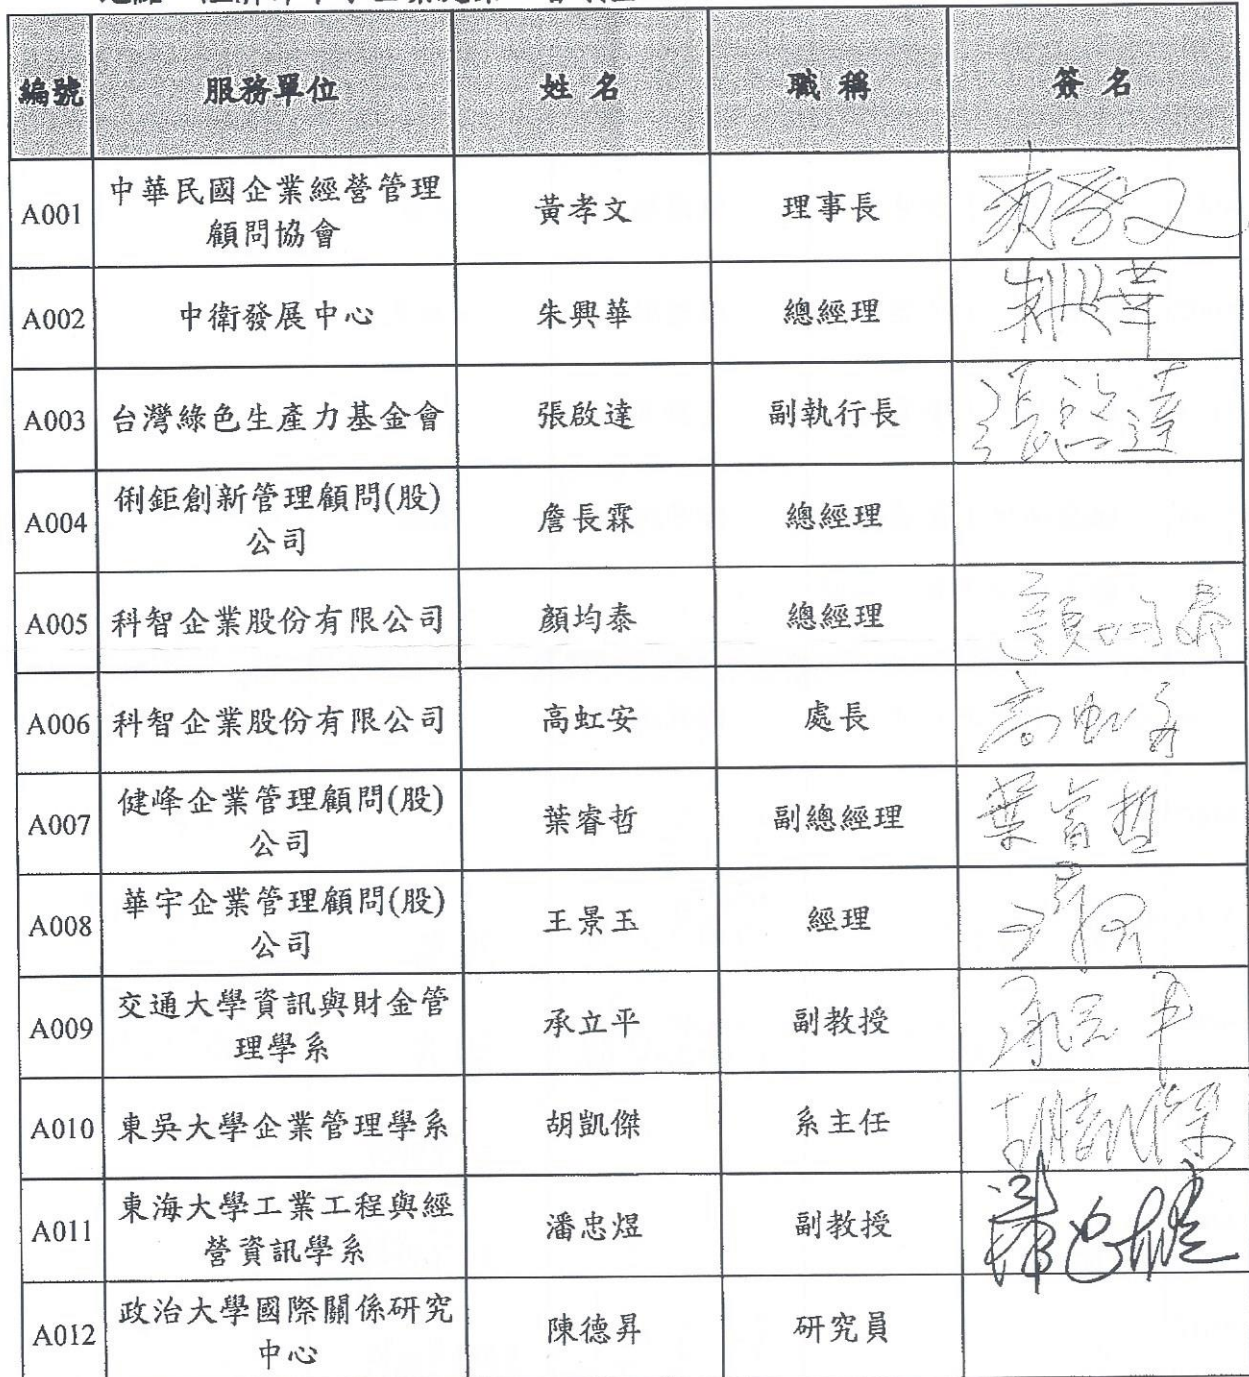 編號 服務單位 姓名 職稱 簽名
A001 中華民國企業經營管理
顧問協會 黃孝文 理事長
A002 中衛發展中心 朱興華 總經理 朱興華
A003 台灣綠色生產力基金會 張啟達 副執行長 張啟達
A004 俐鉅創新管理顧問(股)
公司 詹長霖 總經理
A005 科智企業股份有限公司 顏均泰 總經理 顏均泰
A006 科智企業股份有限公司 高虹安 處長 高虹安
A007 健峰企業管理顧問(股)
公司 葉睿哲 副總經理 葉睿哲
A008 華宇企業管理顧問(股)
公司 王景玉 經理
A009 交通大學資訊與財金管
理學系 承立平 副教授 承立平
A010 東吳大學企業管理學系 胡凱傑 系主任 胡凱傑
A011 東海大學工業工程與經
營資訊學系 潘忠煜 副教授 潘忠煜
A012 政治大學國際關係研究
中心 陳德昇 研究員